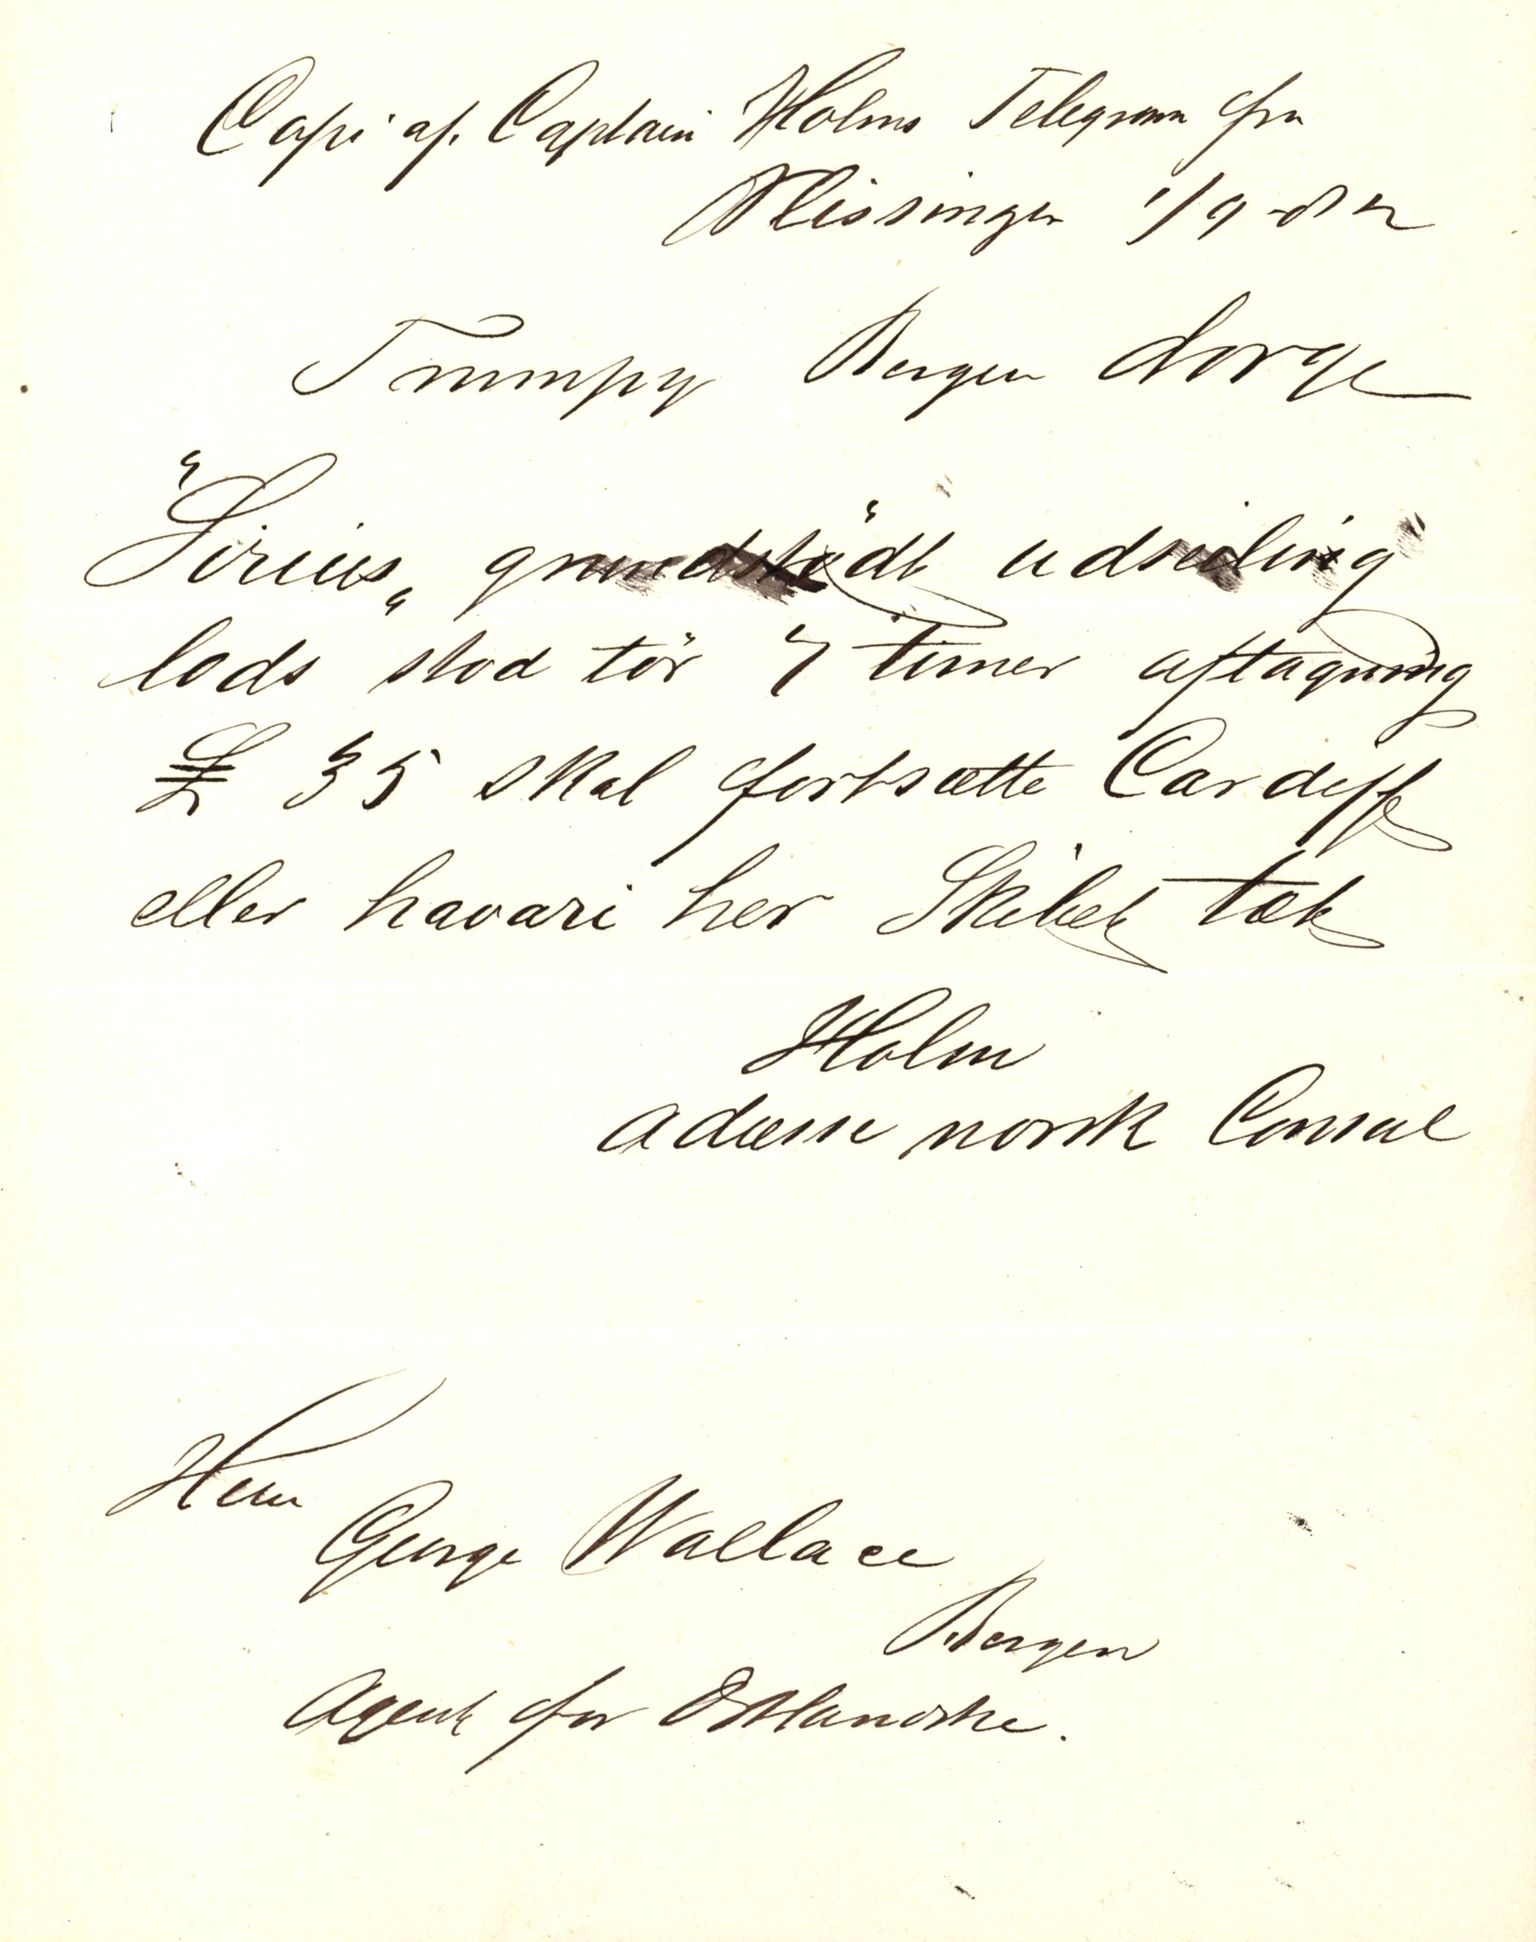 Copi af. Captain Holms Telegram fra
Vlissingen 1/9-82
Trumpy Bergen Norge
"Sirius" grundstödt udseiling
lods stod tör 7 timer aftagning
£ 35 skal fortsætte Cardiff
eller havari her Skibet tæt
Holm
adresse norsk Consul
Herr
George Wallace
Bergen
Agent for Östlandske.